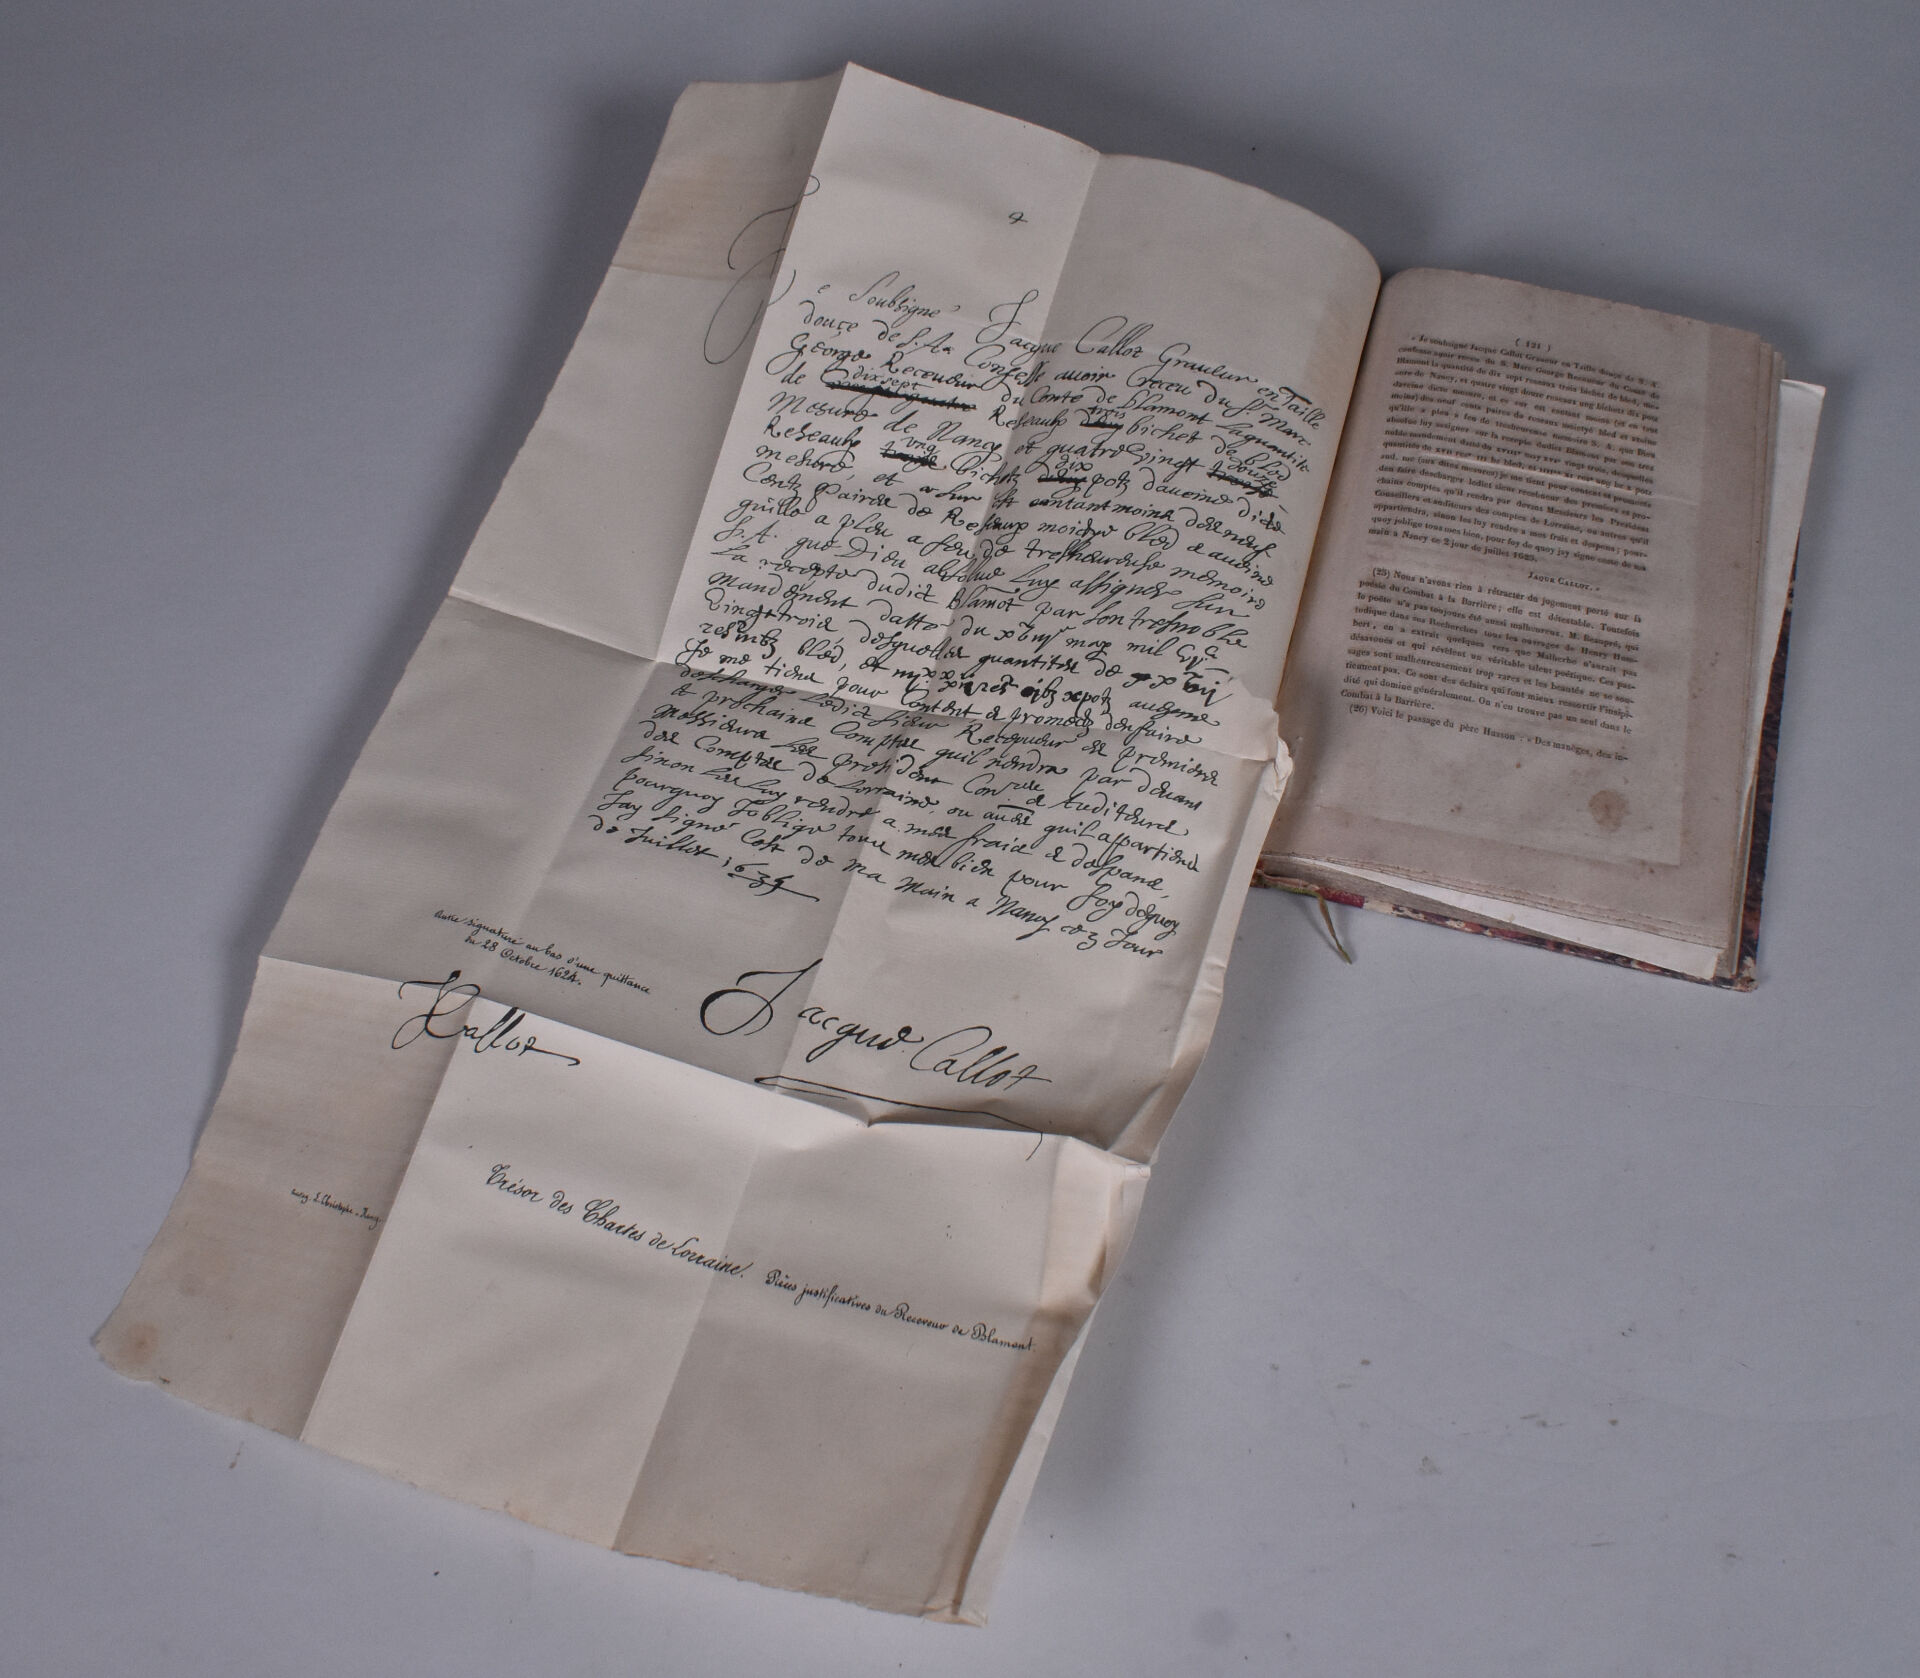 e Soubsigne Jacque Callot Graueur en Taille
douçe de S. A. Confesse auoir Receu du Sr. Marc
George Receueur du Conté de blamont la quantité
de dix sept Reseaulx trois bichet de bled
Mesure de Nancy et quatre vingt douze
Reseaulx vng bichetz dix potz daueine dicte
mesure, et ce sur est tantmoins des neuf
Centz Paires de Reseaux moictié bled & aueine
quille a pleu a feu de tresheureuse memoire
S. A. que Dieu absolue luy assigner sur
La recepte dudict blamot par son tresnoble
mandement datté du may mil
vingt trois desquelles quantites de
bled, et potz aueine
Je me tiens pour Content & prometz den faire
descharger Ledict sieur Receueur es premiers
& prochains Comptes quil rendra par deuant
Messieurs Les president & Auditeurs
des Comptes de Lorraine, ou quil appartiendra
sinon Les Luy rendre a mes fraix & despans,
pourquoy Joblige tous mes bien pour foy dequoy
Jay signe Cest de ma main a Nancy ce 2 Jour
de Juillet 1625
Autre signature au bas d'une quittance
du 28 Octobre 1624.
Callot
Jacque Callot
Trésor des Chartes de Lorraine. Pièces justificatives du Receveur de Blamont.
L. Christophe - Nancy
( 121 )
« Je soubsigné Jacque Callot Graueur en Taille douçe de S. A.
confesse auoir receu du S. Marc George Receueur du Conté de
Blamont la quantité de dix sept reseaux trois bichez de bled, me-
sure de Nancy, et quatre vingt douze reseaux ung bichetz dix potz
daveine dicte mesure, et ce sur est tantmoins (et en tant
moins) des neuf cents paires de reseaux moietyé bled et aveine
qu'ille a pleu a feu de tresheureuse memoire S. A. que Dieu
absolue luy assigner sur la recepte dudict Blamont par son très
noble mandement datté du may vingt trois, desquelles
quantités de bled, et
aud. me (aux dites mesures) je me tient pour content et promets
den faire descharger ledict sieur receueur des premiers et pro-
chains comptes qu'il rendra par devant Messieurs les President
Conseillers et auditeurs des comptes de Lorraine, ou autres qu'il
appartiendra, sinon les luy rendre a mes frais et despens ; pour-
quoy joblige tous mes bien, pour foy de quoy jay signé ceste de ma
main a Nancy ce 2 jour de juillet 1625.
JAQUE CALLOT. »
(25) Nous n'avons rien à rétracter du jugement porté sur la
poésie du Combat à la Barrière ; elle est détestable. Toutefois
le poète n'a pas toujours été aussi malheureux. M. Beaupré, qui
indique dans ses Recherches tous les ouvrages de Henry Hum-
bert, en a extrait quelques vers que Malherbe n'aurait pas
désavoués et qui révèlent un véritable talent poétique. Ces pas-
sages sont malheureusement trop rares et les beautés ne se sou-
tiennent pas. Ce sont des éclairs qui font mieux ressortir l'insipi-
dité qui domine généralement. On n'en trouve pas un seul dans le
Combat à la Barrière.
(26) Voici le passage du père Husson : « Des manèges, des in-